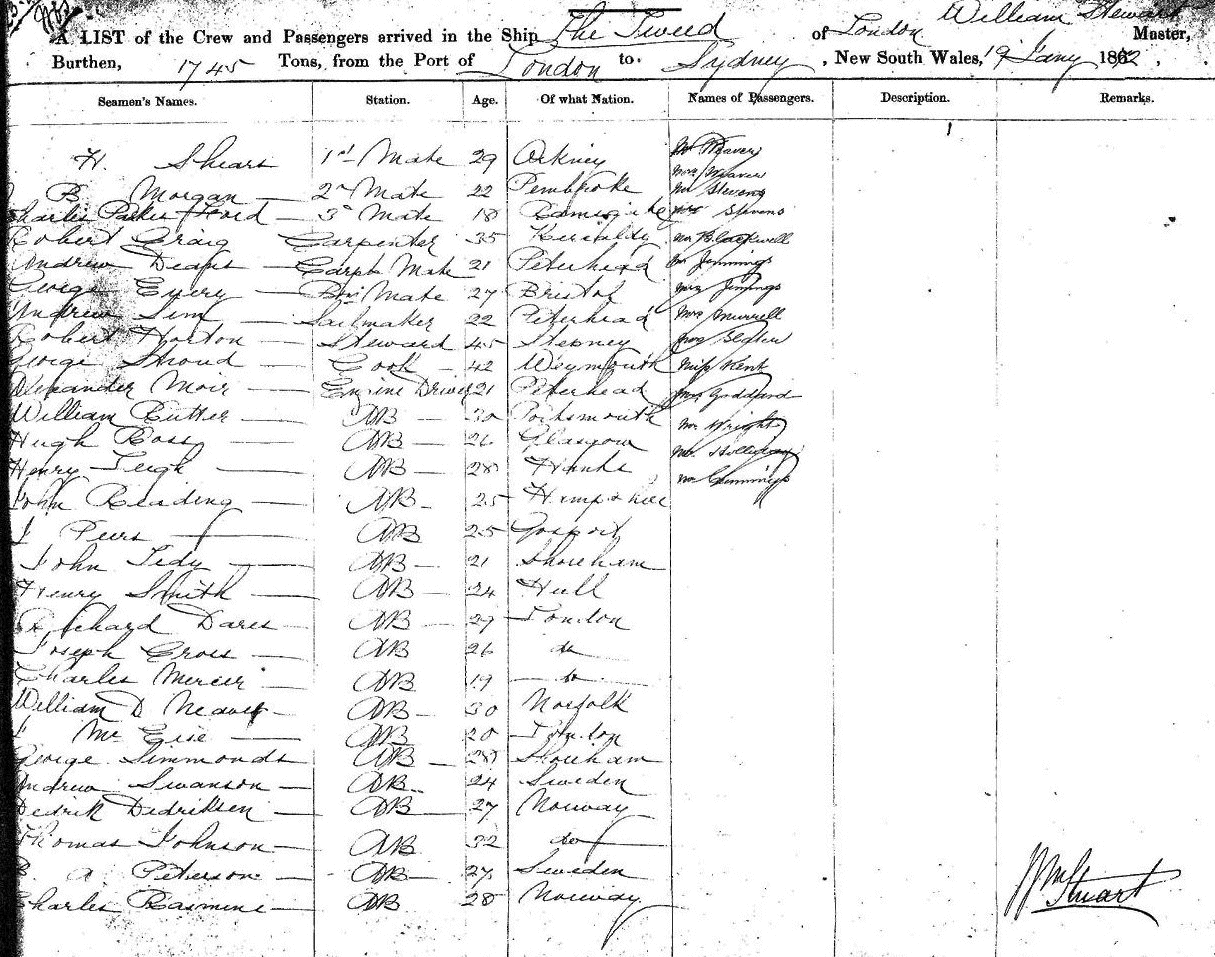 William Stewart
A LIST of the Crew and Passengers arrived in the Ship The Tweed of London Master,
Burthen, 1745 Tons, from the Port of London to Sydney, New South Wales, 19 Jany 1872
Seamen's Names. Station. Age. Of what Nation. Names of Passengers. Description. Remarks.
H. Shears 1st Mate 29 Orkney Mr Weaver
Mrs Weaver
B. Morgan 2n Mate 22 Pembroke Mr Stevens
Charles Parker Ford 3d Mate 18 Ramsgate Mrs Stevens
Robert Craig Carpenter 35 Mr Blackwell
Andrew Carpts Mate 21 Peterhead Mr Jennings
George Bn Mate 27 Bristol Mrs Jennings
Andrew Sim Sailmaker 22 Peterhead Mrs Murrell
Robert Horton Steward 45 Stepney Mrs
George Stroud Cook 42 Weymouth Miss Kent
Alexander Moir Engine Driver 21 Peterhead Goddard
William Cutter AB 30 Portsmouth Mr Wright
Hugh Ross AB 26 Glasgow Mr
Henry Leigh AB 28 Hants Mr Cummings
John Reading AB 25
J Peers AB 25 Gosport
John Tidy AB 21 Shoreham
Henry Smith AB 24 Hull
Richard Dares AB 27 London
Joseph Gross AB 26 do
Charles Mercer AB 19 do
William D Neaves AB 30 Norfolk
Mc AB 20 London
George Simmonds AB 28 Shoreham
Andrew Swanson AB 24 Sweden
Dedrik Dedriksen AB 27 Norway
Thomas Johnson AB 32 do
B. A Peterson AB 27 Sweden
Charles Rasmine AB 28 Norway
Wm Stuart